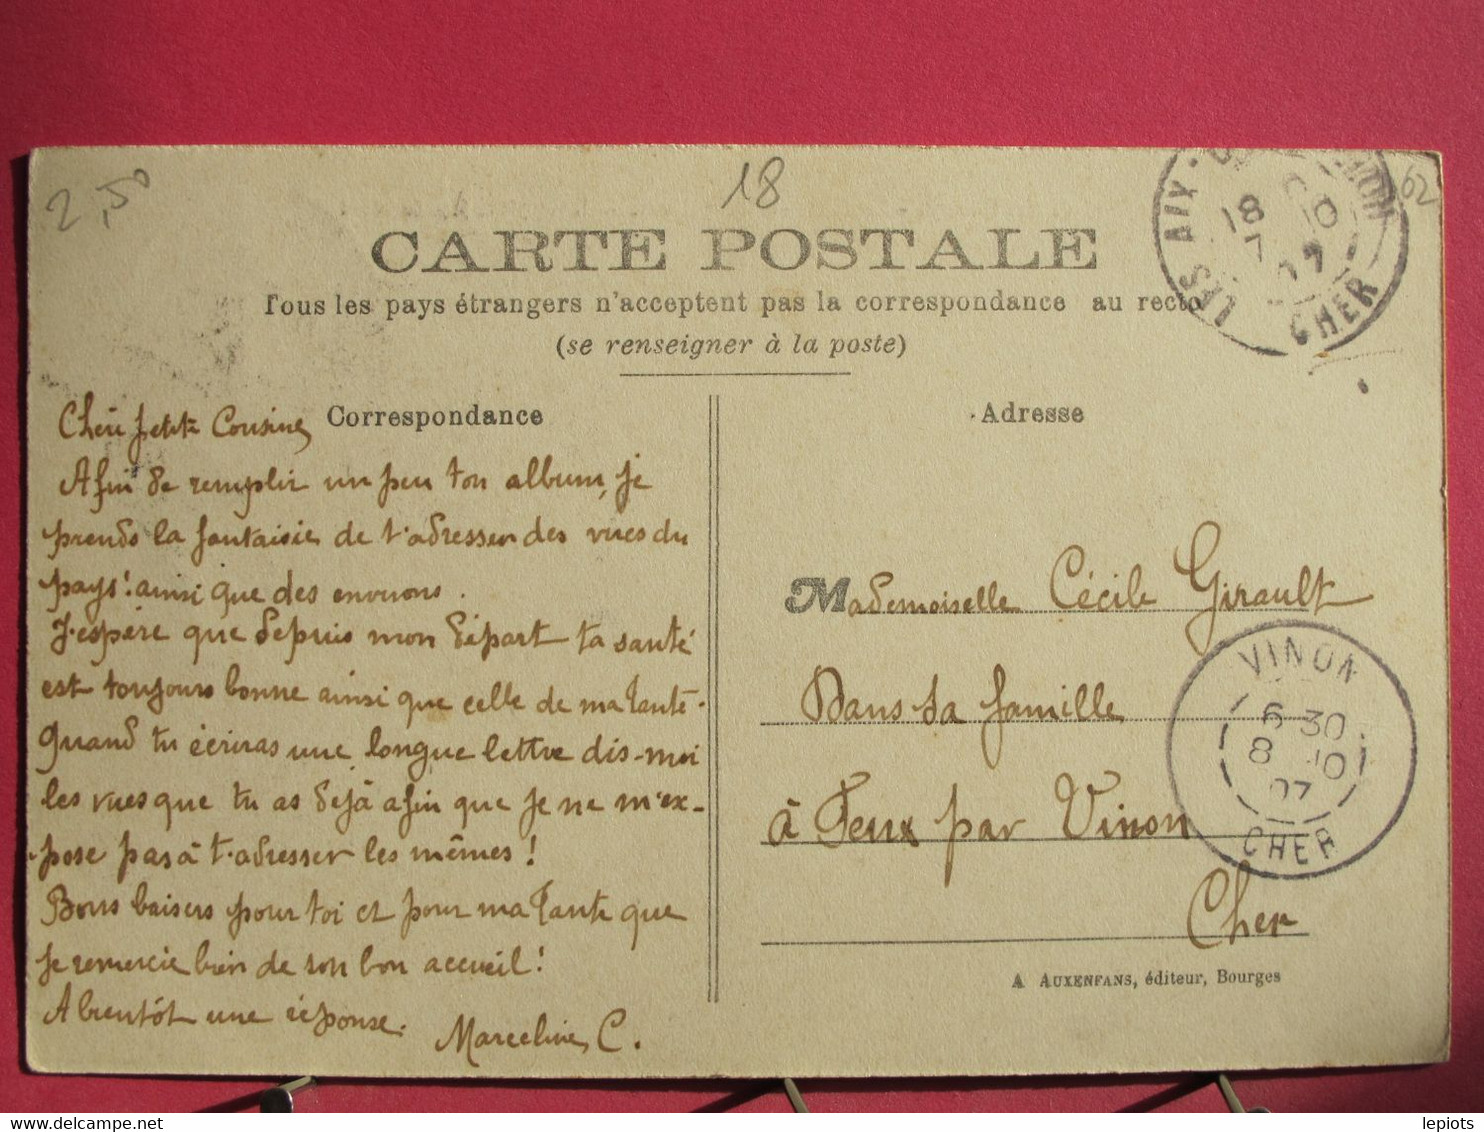 2,50
18
62
CARTE POSTALE
Tous les pays étrangers n'acceptent pas la correspondance au recto
(se renseigner à la poste)
LES AIX
18 10
7 07
CHER
Correspondance
Chère petite Cousine,
Afin de remplir un peu ton album, je
prends la fantaisie de t'adresser des vues du
pays! ainsi que des environs.
J'espère que depuis mon départ ta santé
est toujours bonne ainsi que celle de ma Tante.
Quand tu écriras une longue lettre dis-moi
les vues que tu as déjà afin que je ne m'ex-
pose pas à t'adresser les mêmes!
Bons baisers pour toi et pour ma Tante que
je remercie bien de son bon accueil!
A bientôt une réponse.
Marceline C.
Adresse
Mademoiselle Cécile Girault
Dans sa famille
à Feux par Vinon
Cher
VINON
6 30
8 10
07
CHER
A AUXENFANS, éditeur, Bourges
delcampe.net
lepiots